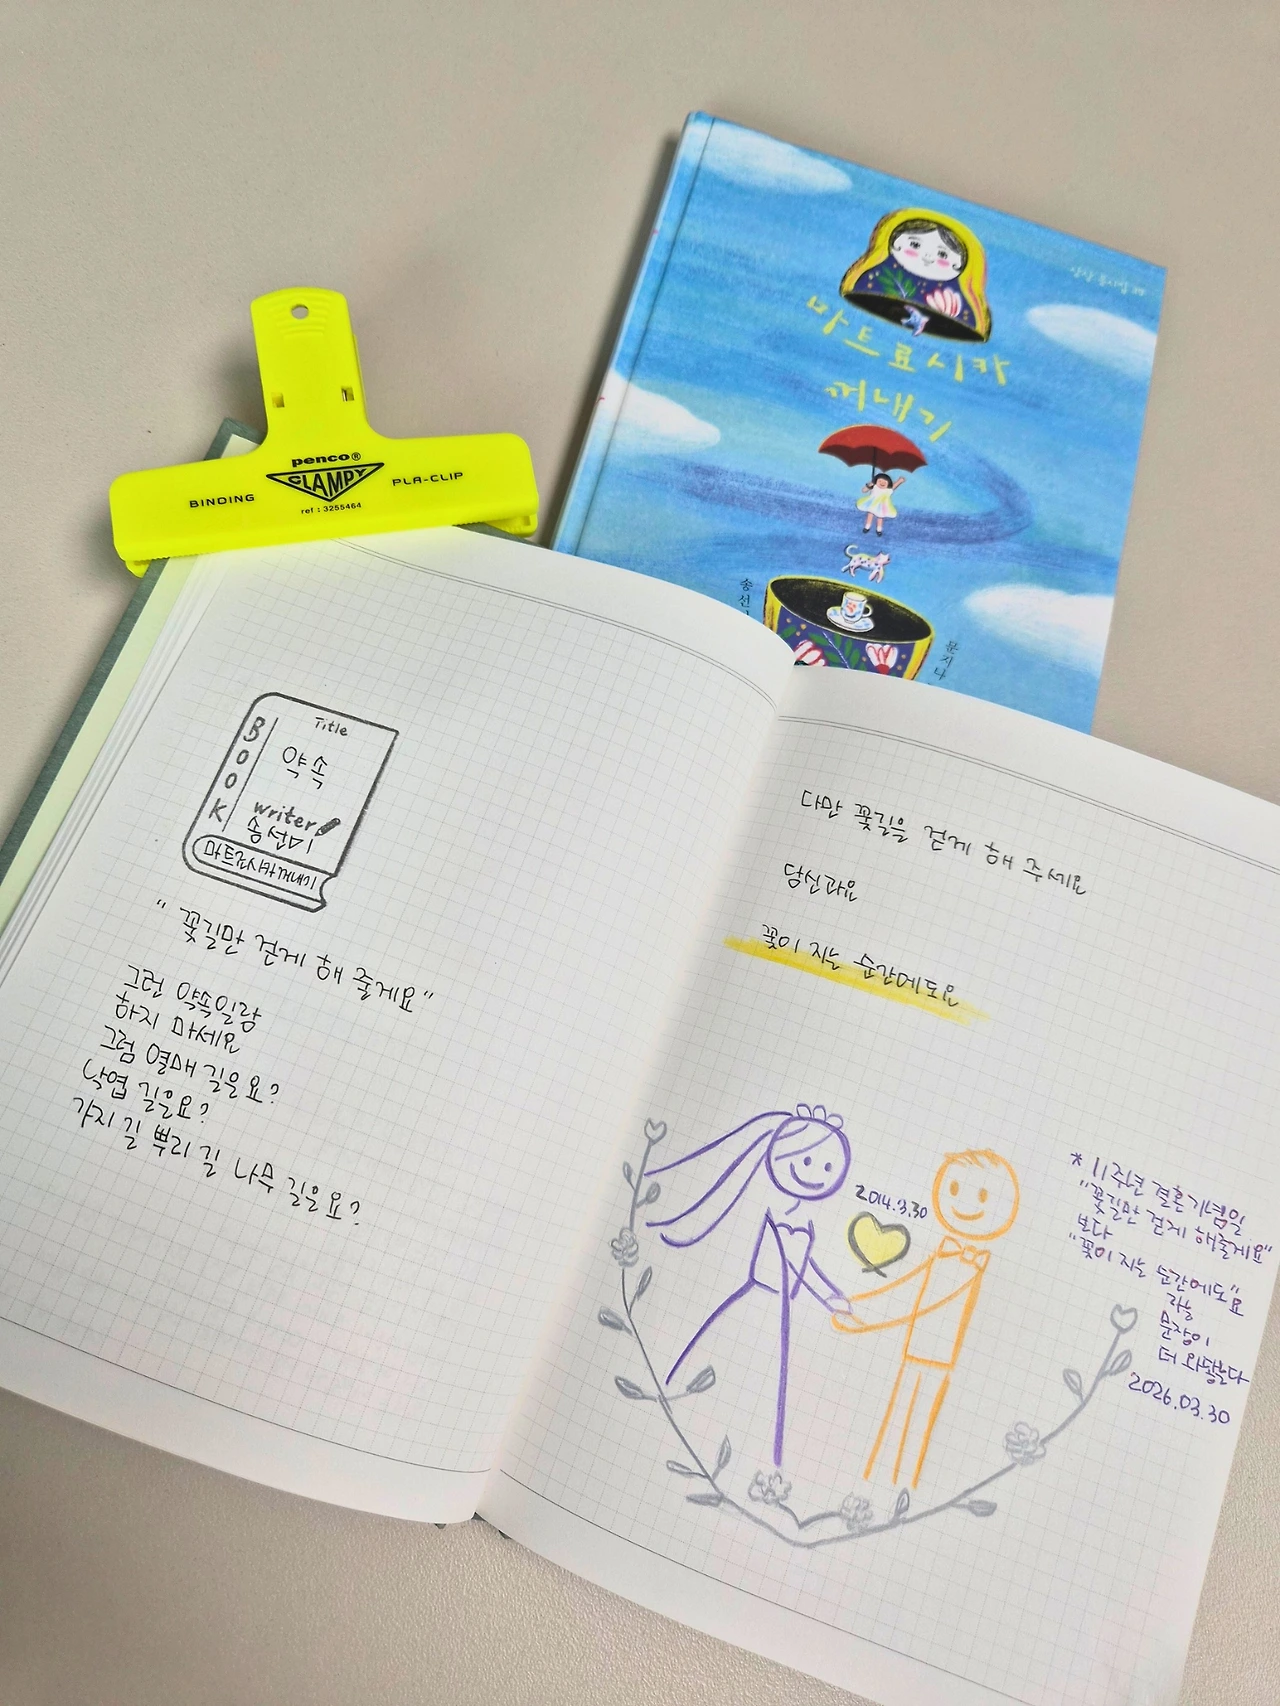 상상 동시집 29
마트료시카
꺼내기
송선
문지나
penco®
CLAMPY
BINDING
PLA-CLIP
ref : 3255464
BOOK
Title
약속
writer
송선미
마트료시카꺼내기
" 꽃길만 걷게 해 줄게요 "
그런 약속일랑
하지 마세요
그럼 열매 길은요?
낙엽 길은요?
가지 길 뿌리 길 나무 길은요?
다만 꽃길을 걷게 해 주세요
당신과요
꽃이 지는 순간에도요
2014.3.30
* 11주년 결혼기념일
"꽃길만 걷게 해줄게요"
보다
"꽃이 지는 순간에도"요
라는
문장이
더 와닿는다
2026.03.30